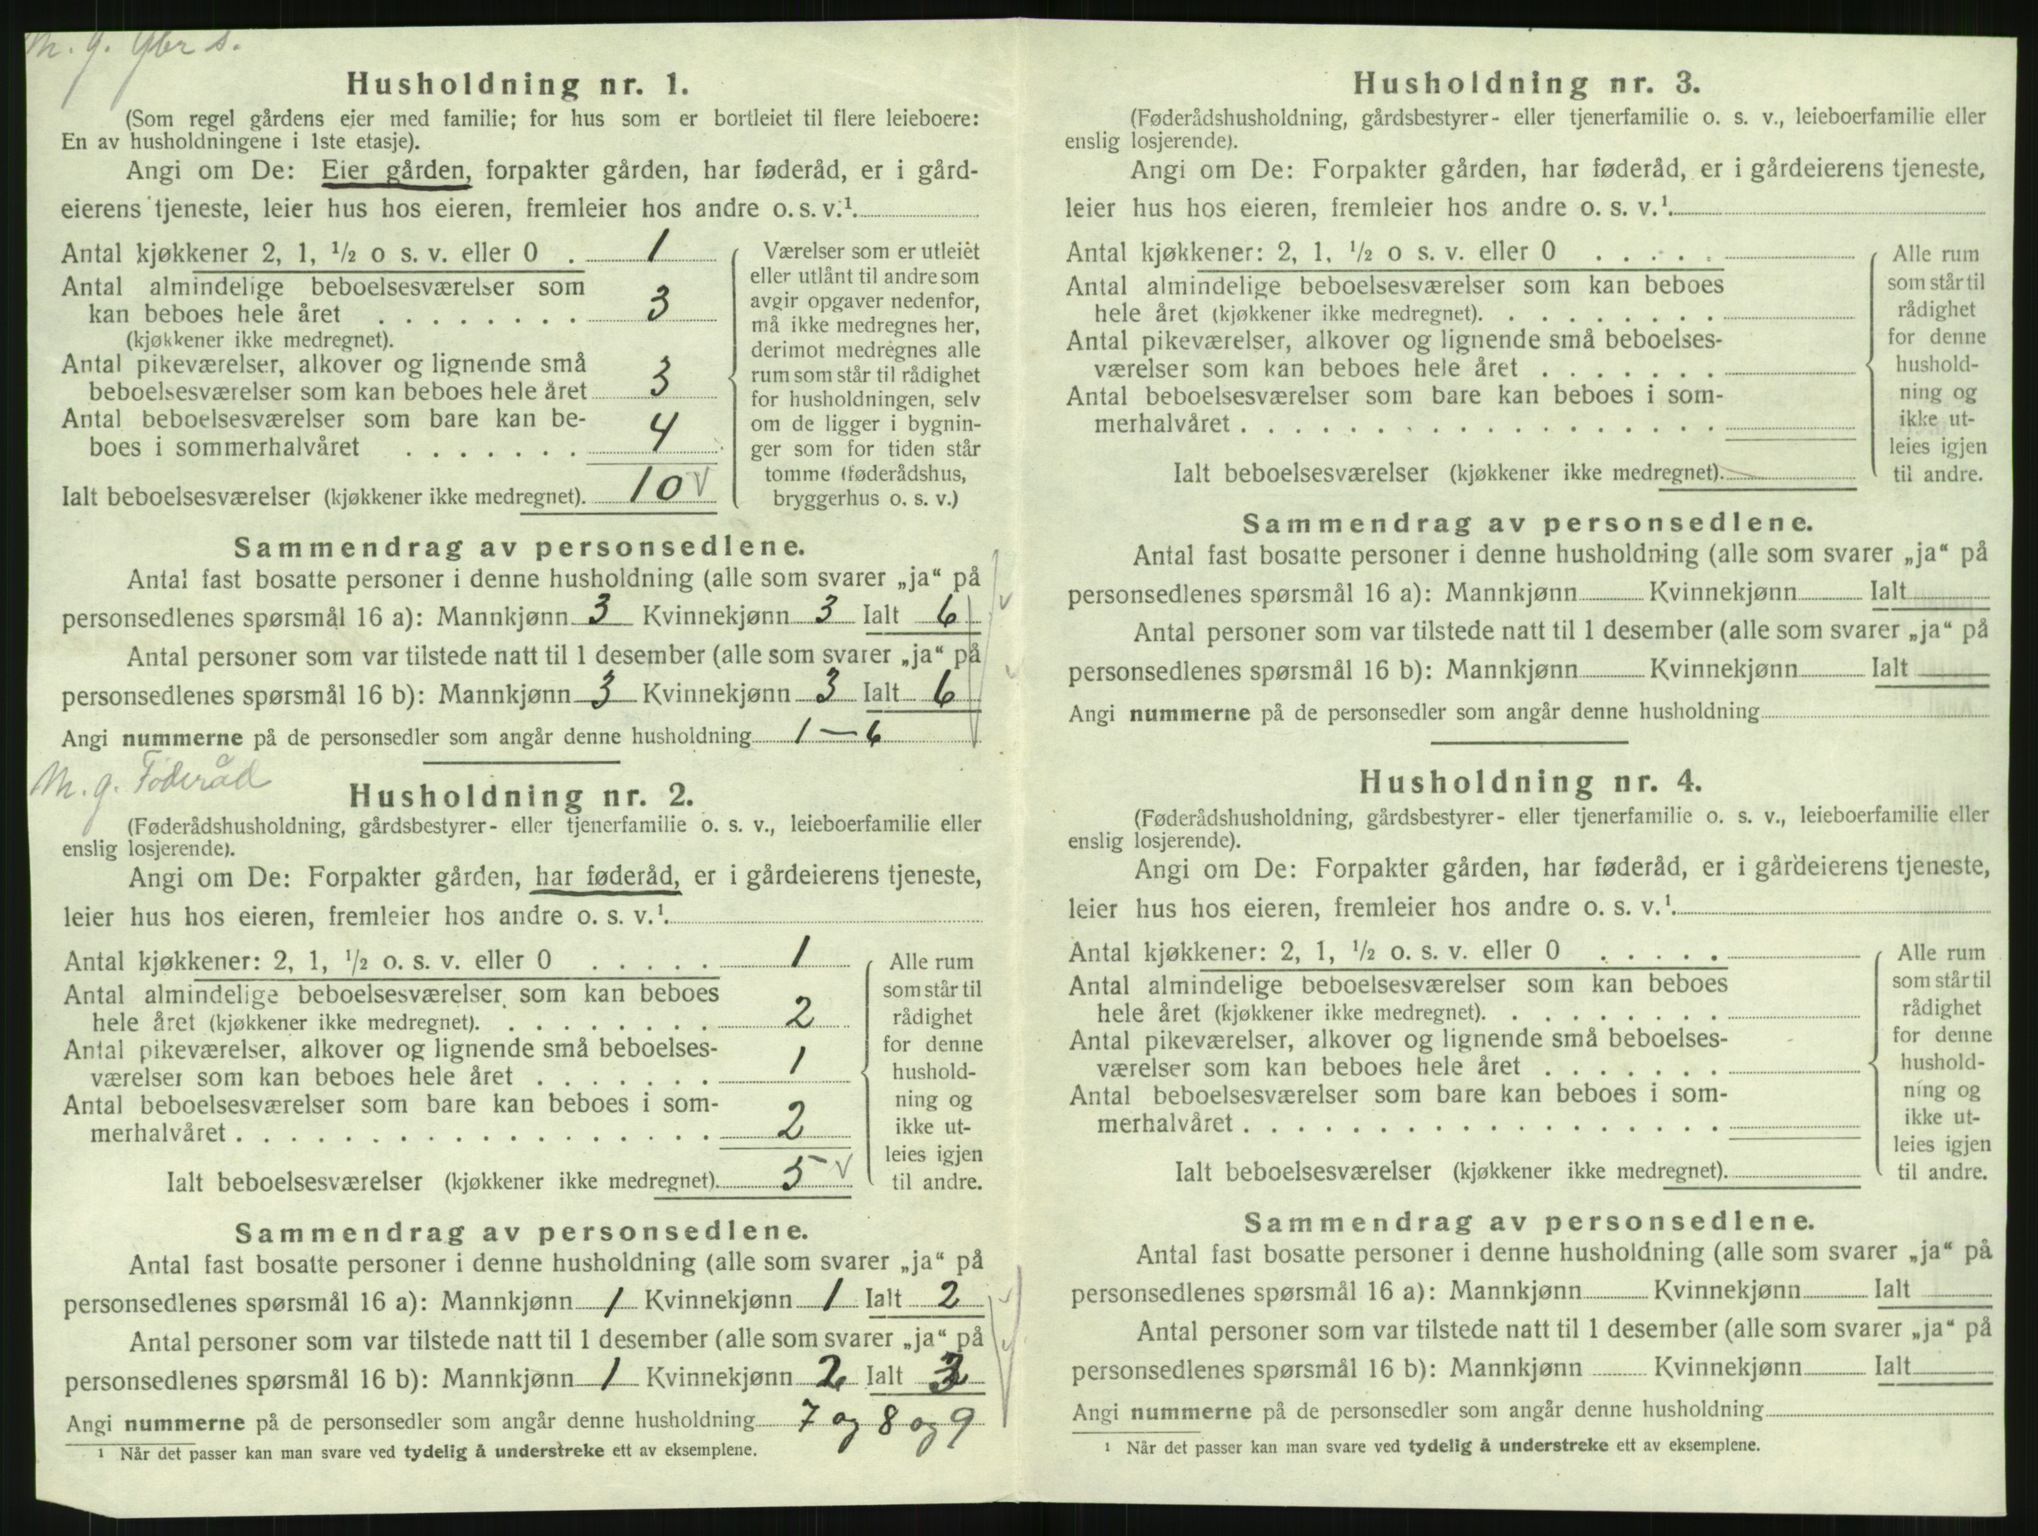 M. g. gbr s.
Husholdning nr. 1.
(Som regel gårdens eier med familie; for hus som er bortleiet til flere leieboere:
En av husholdningene i 1ste etasje).
Angi om De: Eier gården, forpakter gården, har føderåd, er i gård-
eierens tjeneste, leier hus hos eieren, fremleier hos andre o. s. v.¹.
Antal kjøkkener 2, 1, ½ o s. v. eller 0 . 1
Antal almindelige beboelsesværelser som
kan beboes hele året . . . . . . . . 3
(kjøkkener ikke medregnet).
Antal pikeværelser, alkover og lignende små
beboelsesværelser som kan beboes hele året 3
Antal beboelsesværelser som bare kan be-
boes i sommerhalvåret . . . . . . . 4
Ialt beboelsesværelser (kjøkkener ikke medregnet). 10 √
Værelser som er utleiet
eller utlånt til andre som
avgir opgaver nedenfor,
må ikke medregnes her,
derimot medregnes alle
rum som står til rådighet
for husholdningen, selv
om de ligger i bygnin-
ger som for tiden står
tomme (føderådshus,
bryggerhus o. s. v.)
Sammendrag av personsedlene.
Antal fast bosatte personer i denne husholdning (alle som svarer „ja“ på
personsedlenes spørsmål 16 a): Mannkjønn 3 Kvinnekjønn 3 Ialt 6
Antal personer som var tilstede natt til 1 desember (alle som svarer „ja“ på
personsedlenes spørsmål 16 b): Mannkjønn 3 Kvinnekjønn 3 Ialt 6
Angi nummerne på de personsedler som angår denne husholdning 1 — 6
M. g. Føderåd
Husholdning nr. 2.
(Føderådshusholdning, gårdsbestyrer- eller tjenerfamilie o. s. v., leieboerfamilie eller
enslig losjerende).
Angi om De: Forpakter gården, har føderåd, er i gårdeierens tjeneste,
leier hus hos eieren, fremleier hos andre o. s. v.¹.
Antal kjøkkener: 2, 1, ½ o. s. v. eller 0 . . . . . 1
Antal almindelige beboelsesværelser som kan beboes
hele året (kjøkkener ikke medregnet). . . . . . . . . 2
Antal pikeværelser, alkover og lignende små beboelses-
værelser som kan beboes hele året . . . . . . . 1
Antal beboelsesværelser som bare kan beboes i som-
merhalvåret . . . . . . . . . . . . . . . . . . 2
Ialt beboelsesværelser (kjøkkener ikke medregnet). 5 √
Alle rum
som står til
rådighet
for denne
hushold-
ning og
ikke ut-
leies igjen
til andre.
Sammendrag av personsedlene.
Antal fast bosatte personer i denne husholdning (alle som svarer „ja“ på
personsedlenes spørsmål 16 a): Mannkjønn 1 Kvinnekjønn 1 Ialt 2
Antal personer som var tilstede natt til 1 desember (alle som svarer „ja“ på
personsedlenes spørsmål 16 b): Mannkjønn 1 Kvinnekjønn 2 Ialt 3
Angi nummerne på de personsedler som angår denne husholdning 7 og 8 og 9
¹ Når det passer kan man svare ved tydelig å understreke ett av eksemplene.
Husholdning nr. 3.
(Føderådshusholdning, gårdsbestyrer- eller tjenerfamilie o. s. v., leieboerfamilie eller
enslig losjerende).
Angi om De: Forpakter gården, har føderåd, er i gårdeierens tjeneste,
leier hus hos eieren, fremleier hos andre o. s. v.¹.
Antal kjøkkener: 2, 1, ½ o s. v. eller 0 . . . . .
Antal almindelige beboelsesværelser som kan beboes
hele året (kjøkkener ikke medregnet). . . . . . . . .
Antal pikeværelser, alkover og lignende små beboelses-
værelser som kan beboes hele året . . . . . . .
Antal beboelsesværelser som bare kan beboes i som-
merhalvåret . . . . . . . . . . . . . . . . . .
Ialt beboelsesværelser (kjøkkener ikke medregnet).
Alle rum
som står til
rådighet
for denne
hushold-
ning og
ikke ut-
leies igjen
til andre.
Sammendrag av personsedlene.
Antal fast bosatte personer i denne husholdning (alle som svarer „ja“ på
personsedlenes spørsmål 16 a): Mannkjønn Kvinnekjønn Ialt
Antal personer som var tilstede natt til 1 desember (alle som svarer „ja“ på
personsedlenes spørsmål 16 b): Mannkjønn Kvinnekjønn Ialt
Angi nummerne på de personsedler som angår denne husholdning
Husholdning nr. 4.
(Føderådshusholdning, gårdsbestyrer- eller tjenerfamilie o. s. v., leieboerfamilie eller
enslig losjerende).
Angi om De: Forpakter gården, har føderåd, er i gårdeierens tjeneste,
leier hus hos eieren, fremleier hos andre o. s. v.¹.
Antal kjøkkener: 2, 1, ½ o. s. v. eller 0 . . . . .
Antal almindelige beboelsesværelser som kan beboes
hele året (kjøkkener ikke medregnet). . . . . . . . .
Antal pikeværelser, alkover og lignende små beboelses-
værelser som kan beboes hele året . . . . . . .
Antal beboelsesværelser som bare kan beboes i som-
merhalvåret . . . . . . . . . . . . . . . . . .
Ialt beboelsesværelser (kjøkkener ikke medregnet).
Alle rum
som står til
rådighet
for denne
hushold-
ning og
ikke ut-
leies igjen
til andre.
Sammendrag av personsedlene.
Antal fast bosatte personer i denne husholdning (alle som svarer „ja“ på
personsedlenes spørsmål 16 a): Mannkjønn Kvinnekjønn Ialt
Antal personer som var tilstede natt til 1 desember (alle som svarer „ja“ på
personsedlenes spørsmål 16 b): Mannkjønn Kvinnekjønn Ialt
Angi nummerne på de personsedler som angår denne husholdning
¹ Når det passer kan man svare ved tydelig å understreke ett av eksemplene.